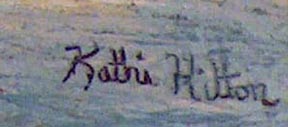 Kathi Hilton